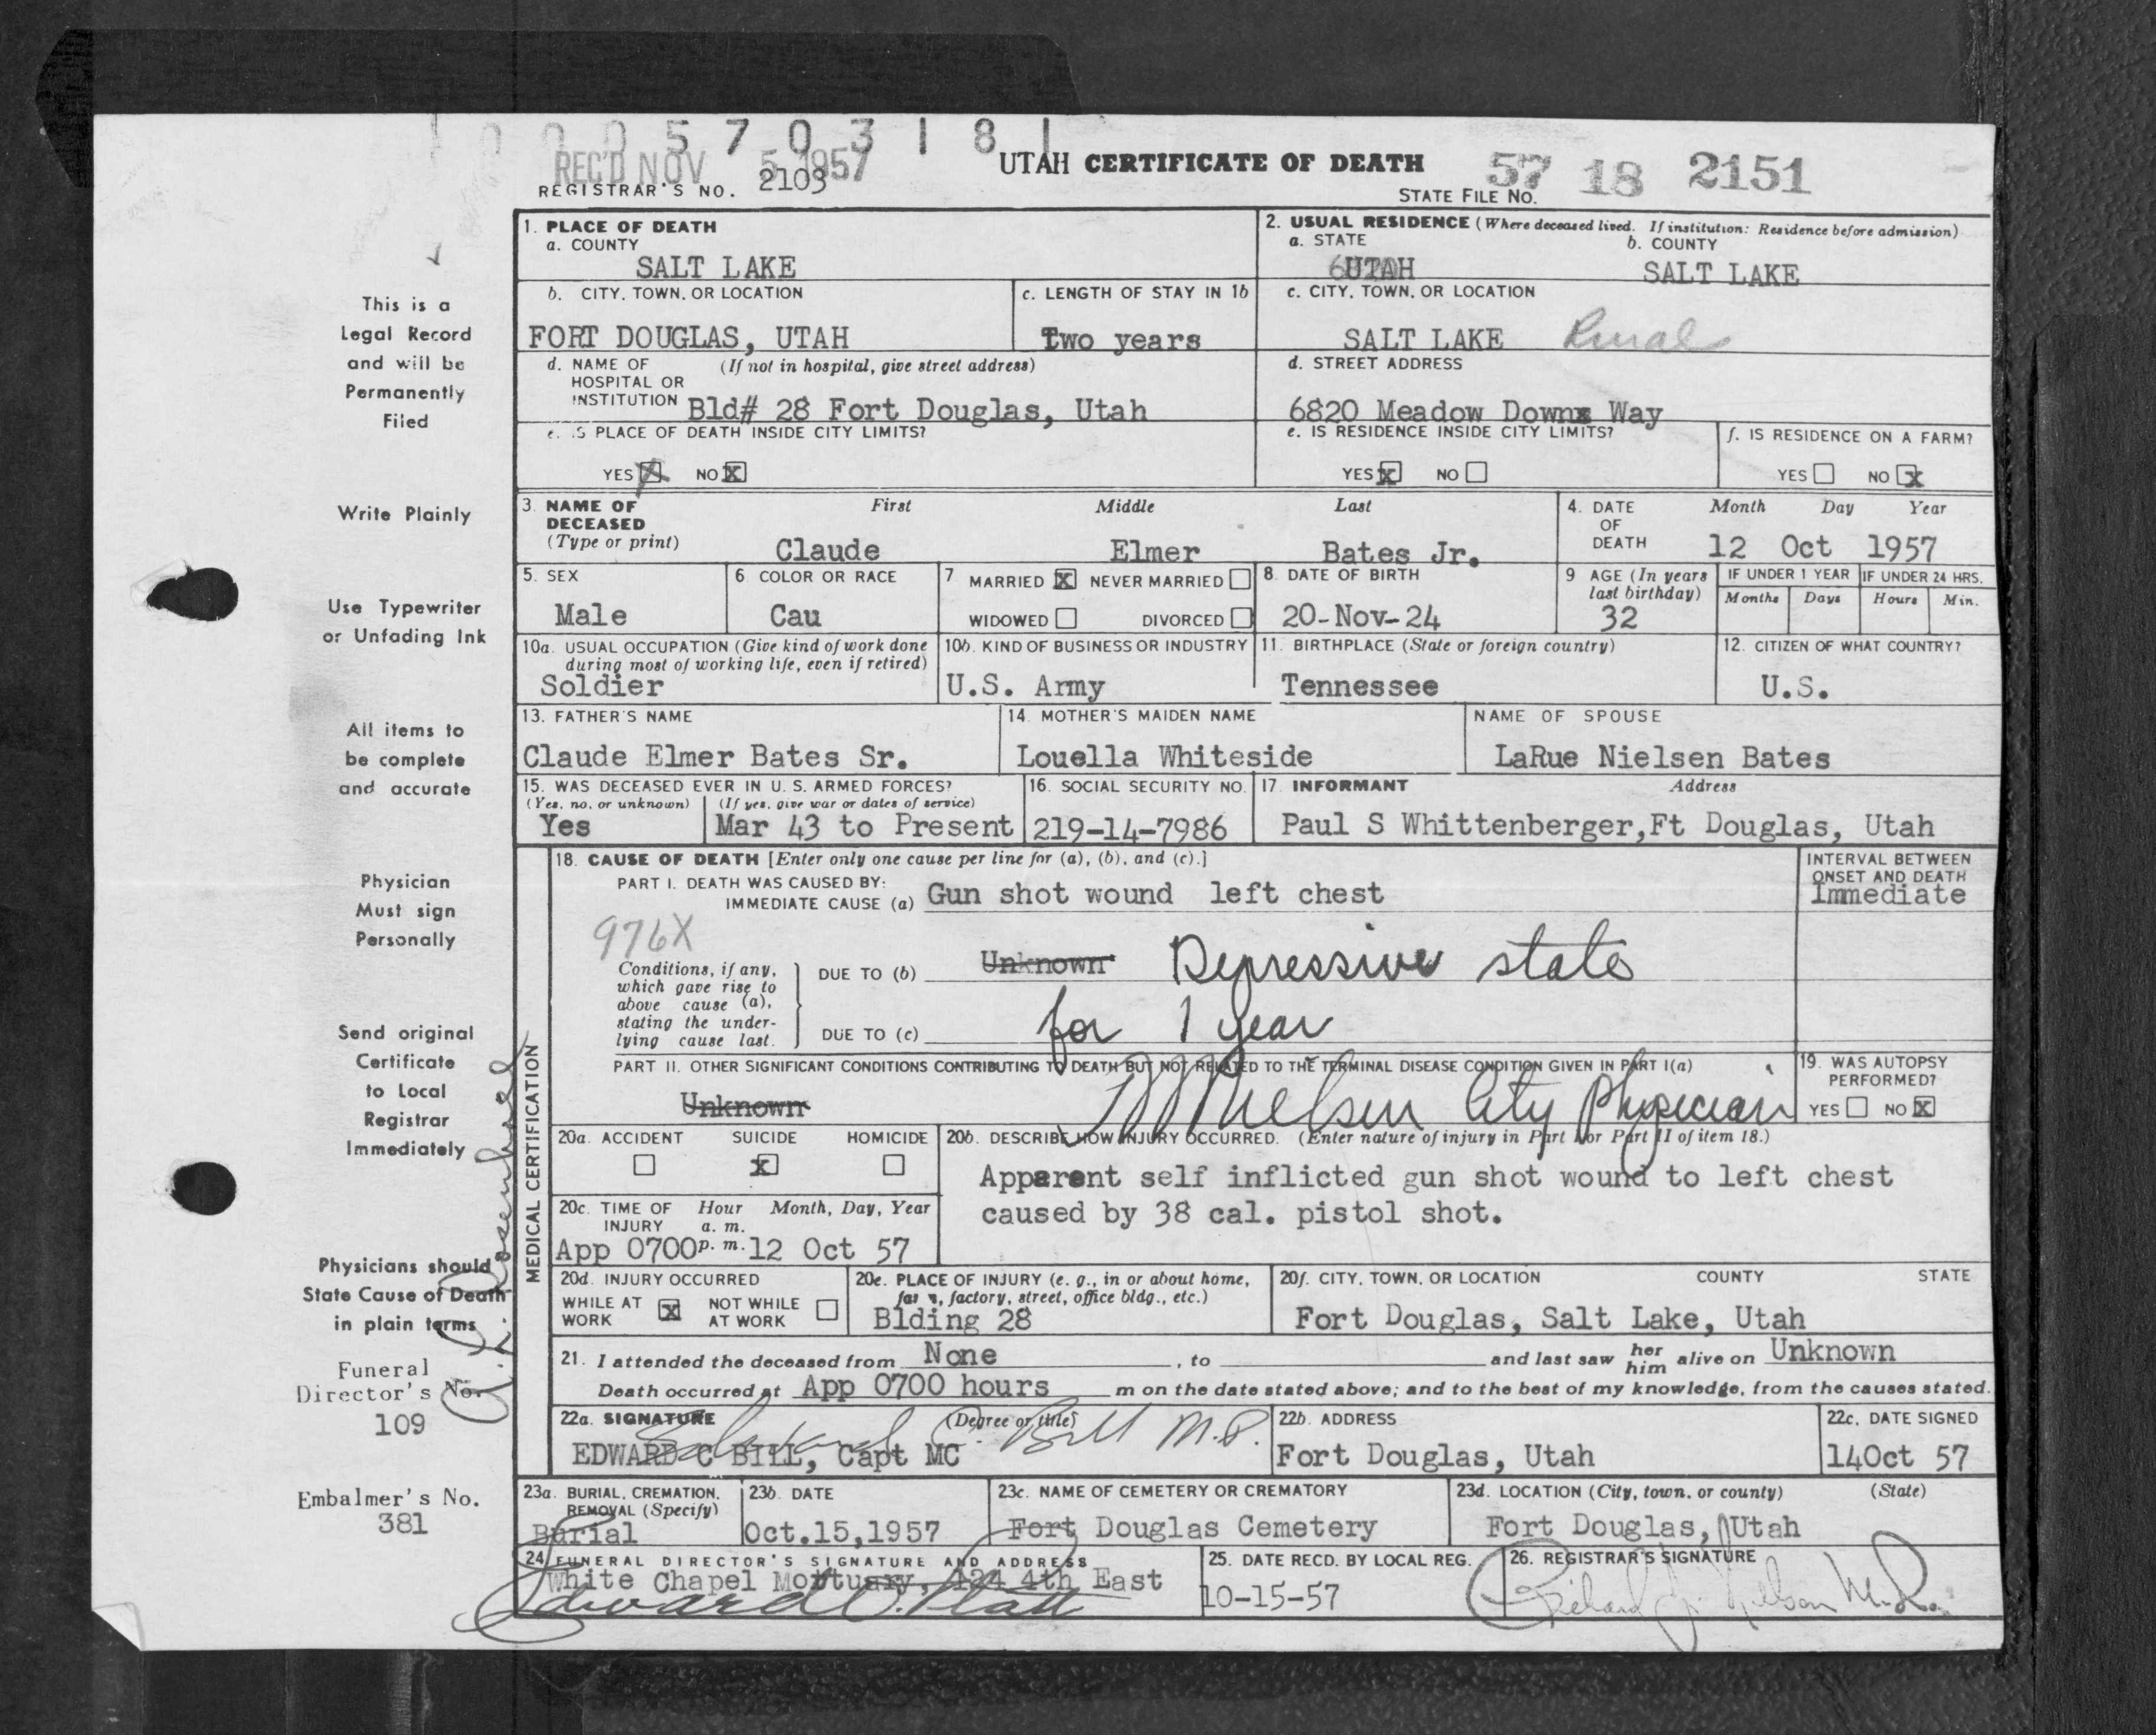 1 0 0 0 5 7 0 3 1 8 1
REC'D NOV 5 1957
REGISTRAR'S NO. 2103
UTAH CERTIFICATE OF DEATH
57 18 2151
STATE FILE NO.
1. PLACE OF DEATH
a. COUNTY
SALT LAKE
2. USUAL RESIDENCE (Where deceased lived. If institution: Residence before admission)
a. STATE
UTAH
b. COUNTY
SALT LAKE
b. CITY, TOWN, OR LOCATION
FORT DOUGLAS, UTAH
c. LENGTH OF STAY IN 1b
Two years
c. CITY, TOWN, OR LOCATION
SALT LAKE Rural
d. NAME OF HOSPITAL OR INSTITUTION (If not in hospital, give street address)
Bld# 28 Fort Douglas, Utah
d. STREET ADDRESS
6820 Meadow Downs Way
e. IS PLACE OF DEATH INSIDE CITY LIMITS?
YES X NO X
e. IS RESIDENCE INSIDE CITY LIMITS?
YES X NO
f. IS RESIDENCE ON A FARM?
YES NO X
3. NAME OF DECEASED (Type or print)
First Middle Last
Claude Elmer Bates Jr.
4. DATE OF DEATH
Month Day Year
12 Oct 1957
5. SEX
Male
6 COLOR OR RACE
Cau
7 MARRIED X NEVER MARRIED
WIDOWED DIVORCED
8. DATE OF BIRTH
20-Nov-24
9 AGE (In years last birthday)
32
IF UNDER 1 YEAR
Months Days
IF UNDER 24 HRS.
Hours Min.
10a. USUAL OCCUPATION (Give kind of work done during most of working life, even if retired)
Soldier
10b. KIND OF BUSINESS OR INDUSTRY
U.S. Army
11. BIRTHPLACE (State or foreign country)
Tennessee
12. CITIZEN OF WHAT COUNTRY?
U.S.
13. FATHER'S NAME
Claude Elmer Bates Sr.
14. MOTHER'S MAIDEN NAME
Louella Whiteside
NAME OF SPOUSE
LaRue Nielsen Bates
15. WAS DECEASED EVER IN U. S. ARMED FORCES?
(Yes, no, or unknown) (If yes, give war or dates of service)
Yes Mar 43 to Present
16. SOCIAL SECURITY NO.
219-14-7986
17. INFORMANT Address
Paul S Whittenberger, Ft Douglas, Utah
MEDICAL CERTIFICATION
18. CAUSE OF DEATH [Enter only one cause per line for (a), (b), and (c).]
PART I. DEATH WAS CAUSED BY:
IMMEDIATE CAUSE (a) Gun shot wound left chest
INTERVAL BETWEEN ONSET AND DEATH
Immediate
976X
Conditions, if any, which gave rise to above cause (a), stating the underlying cause last.
DUE TO (b) Unknown Depressive state
DUE TO (c) for 1 year
PART II. OTHER SIGNIFICANT CONDITIONS CONTRIBUTING TO DEATH BUT NOT RELATED TO THE TERMINAL DISEASE CONDITION GIVEN IN PART I(a)
Unknown
Nielsen City Physician
19. WAS AUTOPSY PERFORMED?
YES NO X
20a. ACCIDENT SUICIDE HOMICIDE
X
20b. DESCRIBE HOW INJURY OCCURRED. (Enter nature of injury in Part I or Part II of item 18.)
Apparent self inflicted gun shot wound to left chest
caused by 38 cal. pistol shot.
20c. TIME OF INJURY Hour Month, Day, Year
a. m.
App 0700 p. m. 12 Oct 57
20d. INJURY OCCURRED
WHILE AT WORK X NOT WHILE AT WORK
20e. PLACE OF INJURY (e. g., in or about home, farm, factory, street, office bldg., etc.)
Blding 28
20f. CITY, TOWN, OR LOCATION COUNTY STATE
Fort Douglas, Salt Lake, Utah
21. I attended the deceased from None , to and last saw her him alive on Unknown
Death occurred at App 0700 hours m on the date stated above; and to the best of my knowledge, from the causes stated.
22a. SIGNATURE (Degree or title)
Edward C. Bill M.D.
EDWARD C BILL, Capt MC
22b. ADDRESS
Fort Douglas, Utah
22c. DATE SIGNED
14Oct 57
23a. BURIAL, CREMATION, REMOVAL (Specify)
Burial
23b. DATE
Oct.15,1957
23c. NAME OF CEMETERY OR CREMATORY
Fort Douglas Cemetery
23d. LOCATION (City, town, or county) (State)
Fort Douglas, Utah
24 FUNERAL DIRECTOR'S SIGNATURE AND ADDRESS
White Chapel Mortuary, 124 4th East
Edward D. Platt
25. DATE RECD. BY LOCAL REG.
10-15-57
26. REGISTRAR'S SIGNATURE
Richard J. Nelson M.D.
This is a
Legal Record
and will be
Permanently
Filed
Write Plainly
Use Typewriter
or Unfading Ink
All items to
be complete
and accurate
Physician
Must sign
Personally
Send original
Certificate
to Local
Registrar
Immediately
Physicians should
State Cause of Death
in plain terms
Funeral
Director's No.
109
Embalmer's No.
381